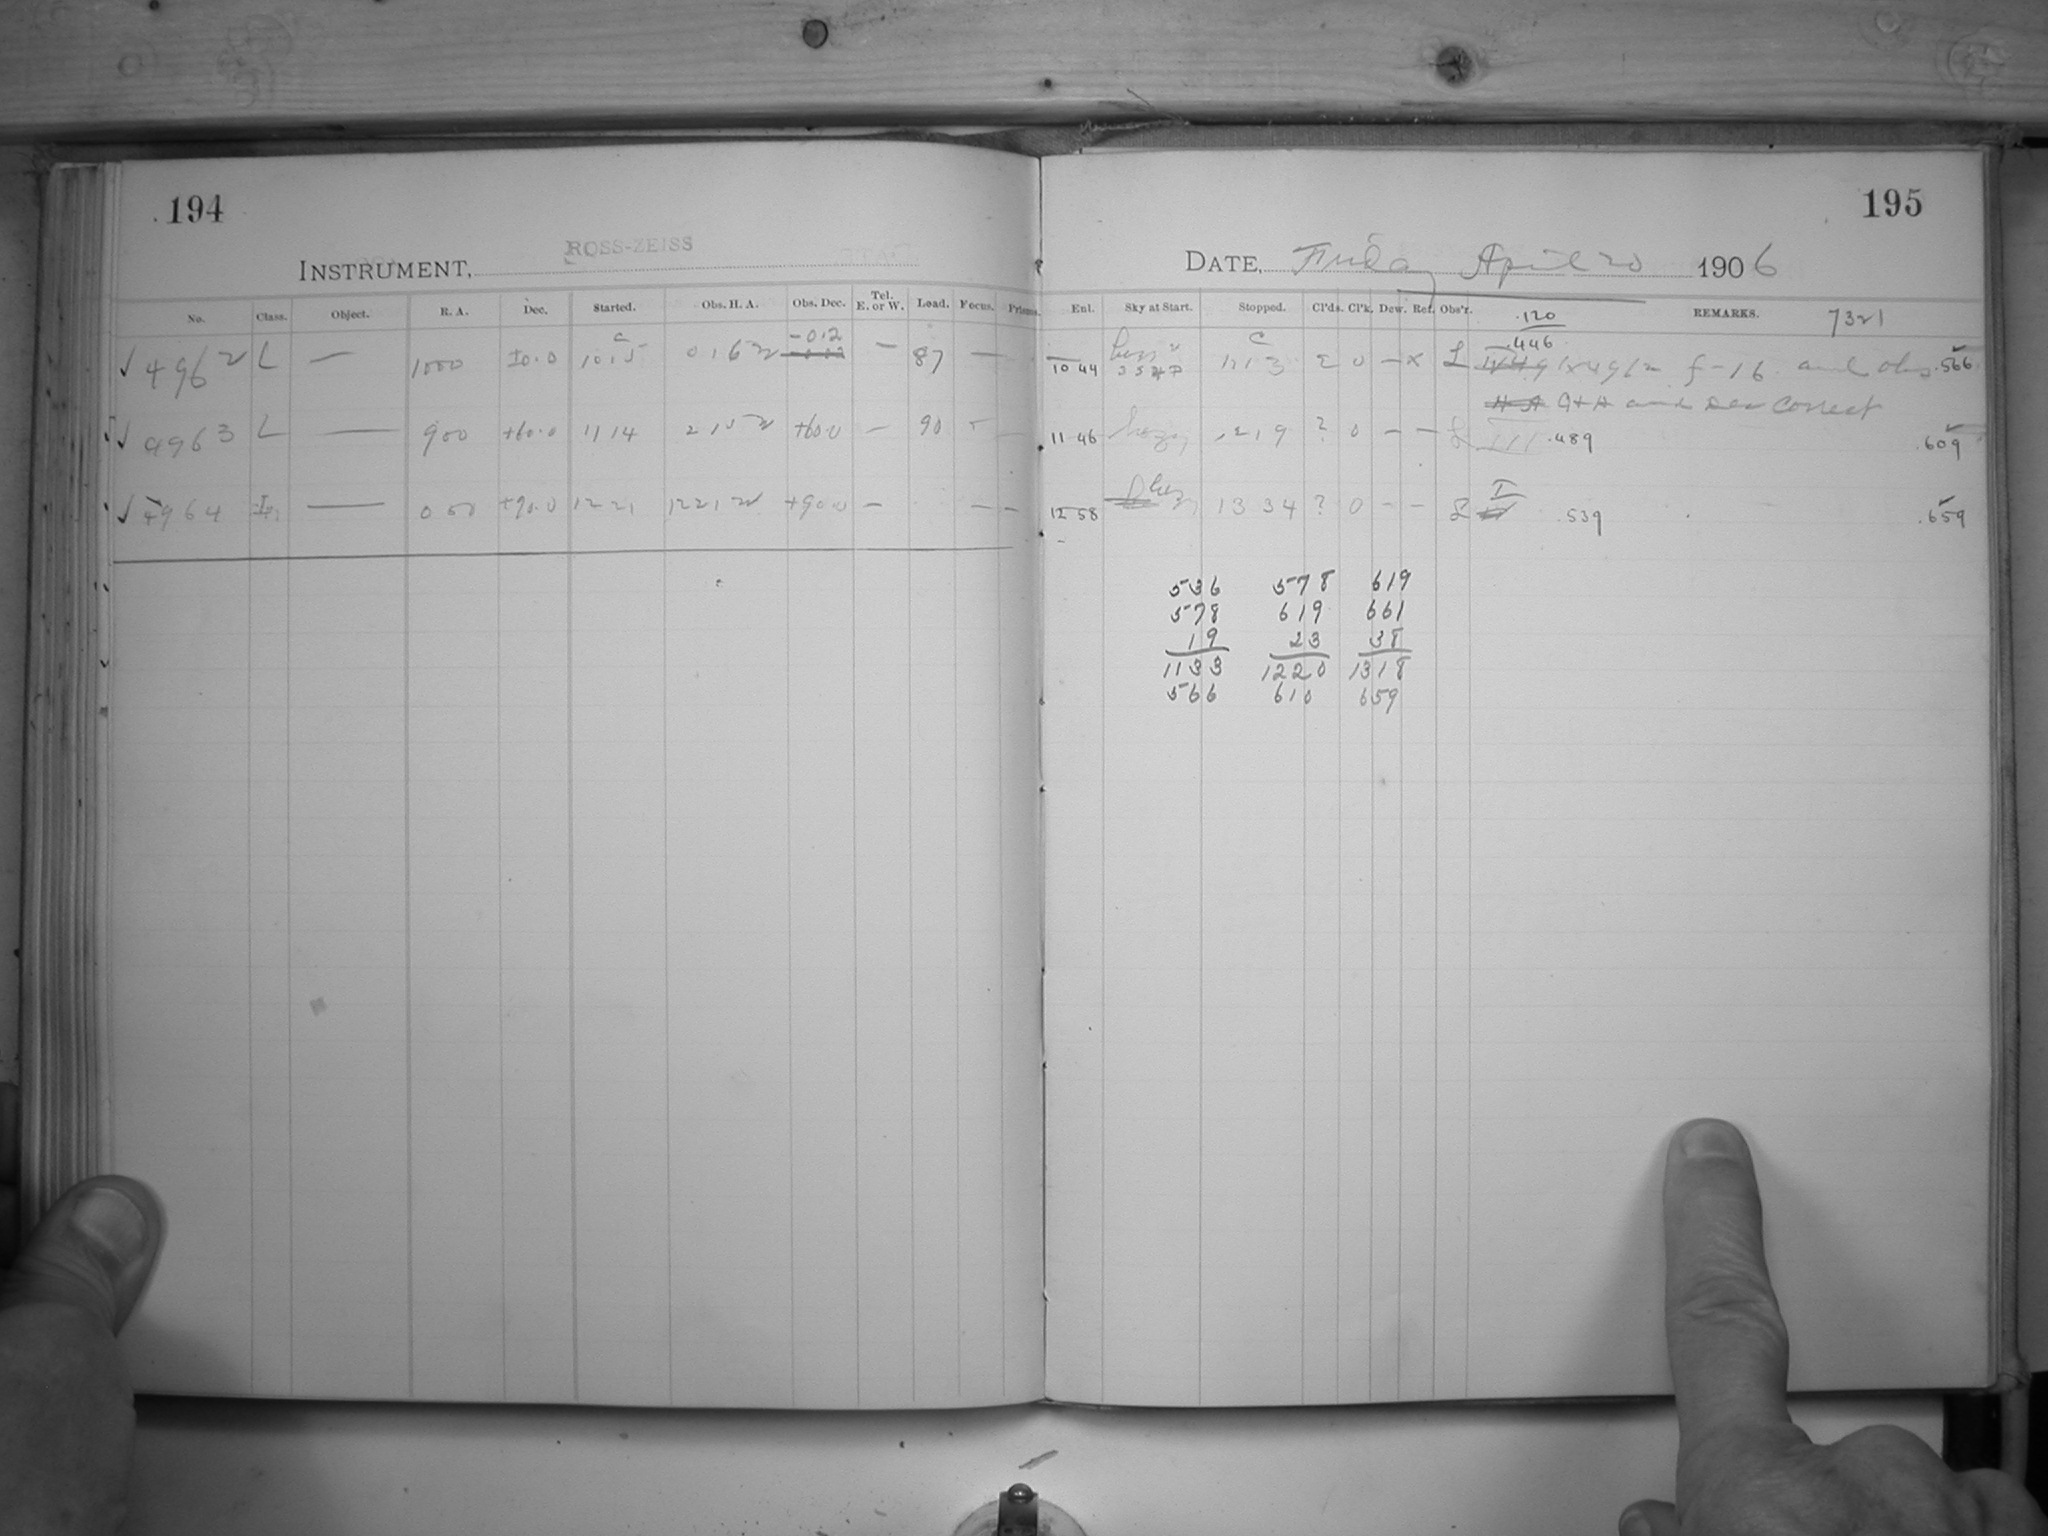 194
INSTRUMENT, ROSS-ZEISS
No. Class. Object. R. A. Dec. Started. Obs. H. A. Obs. Dec. Tel. E. or W. Load. Focus. Prisms.
-0.2
✓ 4962 L — 1000 ±0.0 1015 016 W — 87 —
✓ 4963 L — 900 +60.0 1114 215 W +60.0 — 90 —
✓ 4964 — 000 +90.0 1221 1221 W +90.0 — — —
195
DATE, Friday April 20 1906
Enl. Sky at Start. Stopped. Cl'ds. Cl'k. Dew. Ref. Obs'r. REMARKS.
.120 7321
.446
10 44 1113 0 — × £ 4962 f-16 and obs .566
and Dec correct
11 46 hazy 1219 ? 0 — — £ III .489 .609
12 58 hazy 1334 ? 0 — — £ I .539 .659
536 578 619
578 619 661
19 23 38
1133 1220 1318
566 610 659